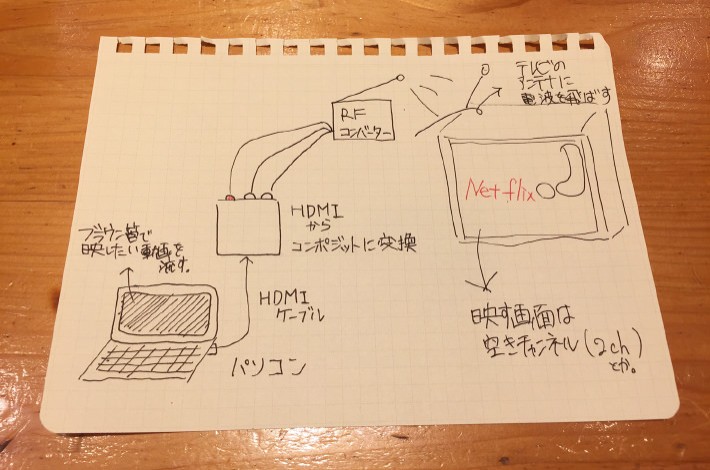 テレビの
アンテナに
電波を飛ばす
RF
コンバーター
Netflix
HDMI
から
コンポジットに変換
ブラウン管で
映したい動画を
流す。
HDMI
ケーブル
パソコン
映す画面は
空きチャンネル(2ch)
とか。